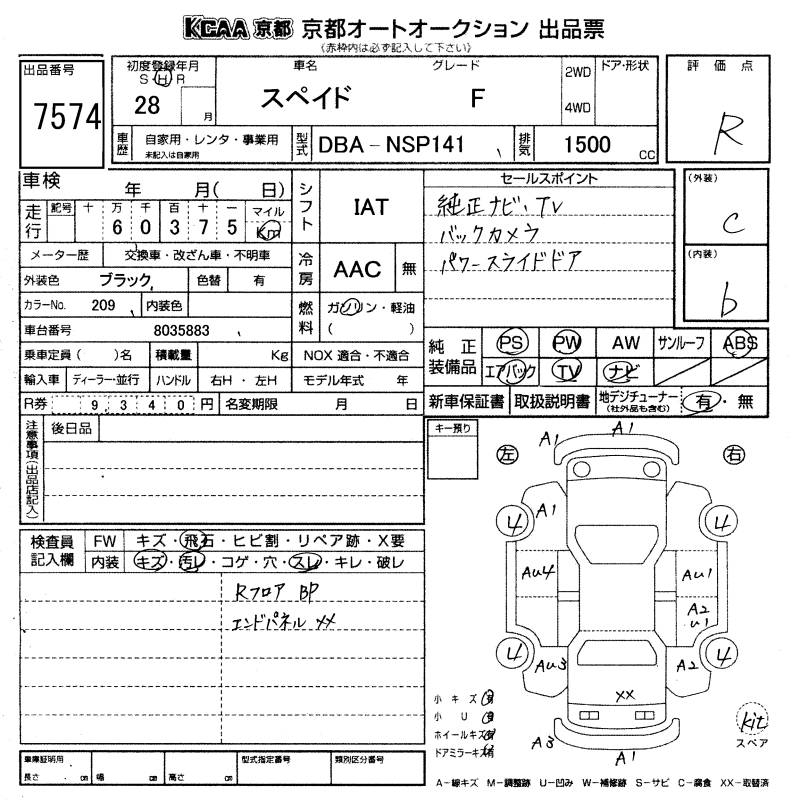 KCAA 京都 京都オートオークション 出品票
(赤枠内は必ず記入して下さい)
出品番号
7574
初度登録年月
S H R
28 月
車名
スペイド
グレード
F
2WD
4WD
ドア・形状
評価点
R
車歴
自家用・レンタ・事業用
未記入は自家用
型式 DBA-NSP141
排気 1500 cc
車検 年 月( 日)
走行 記号 十 万 千 百 十 一 マイル
6 0 3 7 5 Km
メーター歴 交換車・改ざん車・不明車
外装色 ブラック 色替 有
カラーNo. 209 内装色
車台番号 8035883
乗車定員( )名 積載量 Kg
輸入車 ディーラー・並行 ハンドル 右H・左H
R券 9,340円 名変期限 月 日
シフト IAT
冷房 AAC 無
燃料 ガソリン・軽油
( )
NOX 適合・不適合
モデル年式 年
セールスポイント
純正ナビ、TV
バックカメラ
パワースライドドア
(外装)
C
(内装)
b
純正装備品 PS PW AW サンルーフ ABS
エアバック TV ナビ
新車保証書 取扱説明書 地デジチューナー
(社外品も含む) 有・無
注意事項(出品店記入)
後日品
キー預り
左
右
A1
A1
A1
4
4
AU4
AU1
A2
U1
4
4
AU3
A2
XX
A3
A1
検査員記入欄
FW キズ・飛石・ヒビ割・リペア跡・X要
内装 キズ・汚レ・コゲ・穴・スレ・キレ・破レ
Rフロア BP
エンドパネル XX
小キズ 有
小U 有
ホイールキズ 有
ドアミラーキズ 有
kit
スペア
車庫証明用
長さ cm 幅 cm 高さ cm
型式指定番号
類別区分番号
A-線キズ M-調整跡 U-凹み W-補修跡 S-サビ C-腐食 XX-取替済